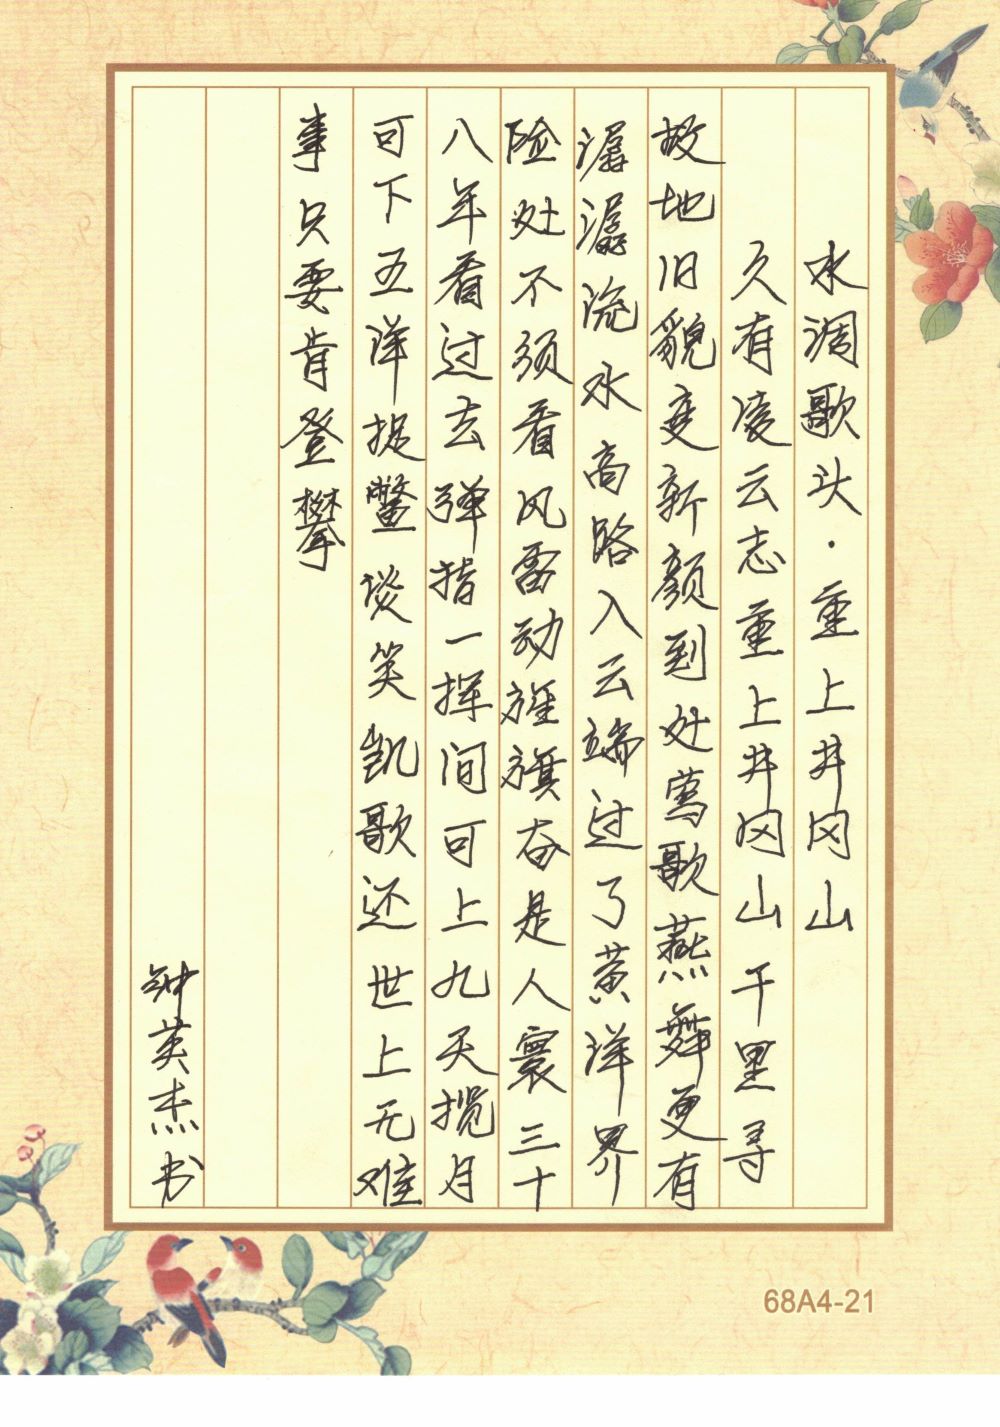 水调歌头·重上井冈山
久有凌云志重上井冈山千里寻
故地旧貌变新颜到处莺歌燕舞更有
潺潺流水高路入云端过了黄洋界
险处不须看风雷动旌旗奋是人寰三十
八年看过去弹指一挥间可上九天揽月
可下五洋捉鳖谈笑凯歌还世上无难
事只要肯登攀
钟英杰书
68A4-21